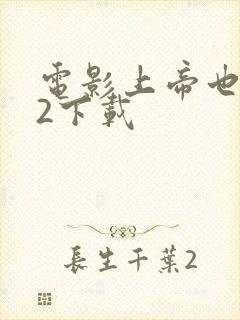 電影上帝也
2下載
長生千葉2